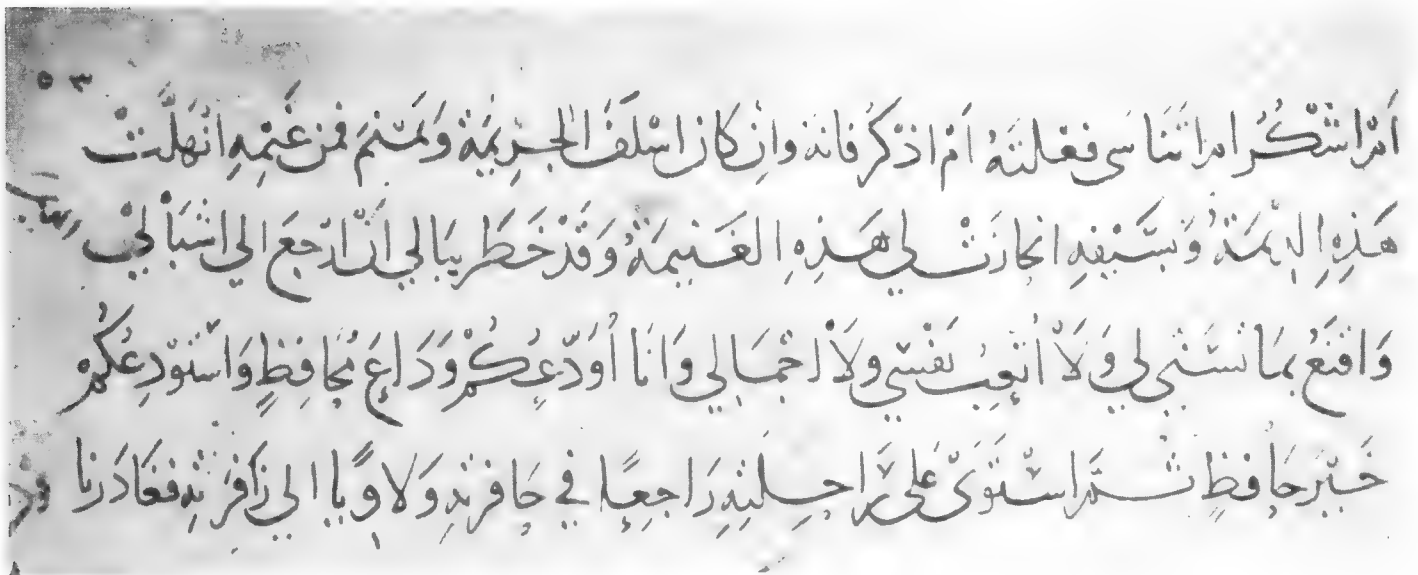 ٥٣
أم اشكر ام اتناسى فعلته أم اذكر فانه وان كان اسلف الجريمة ونمنم فمن غيمه انهلت
هذه الديمة وبسيفه انحازت لي هذه الغنيمة وقد خطر ببالي أن ارجع الى اشبالي
واقنع بما تسنى لي ولا اتعب نفسي ولا اجمالي وانا أودعكم وداع محافظ واستودعكم
خير حافظ ثم استوى على راحلته راجعا في حافرته ولاويا الى زافرته فغادرنا